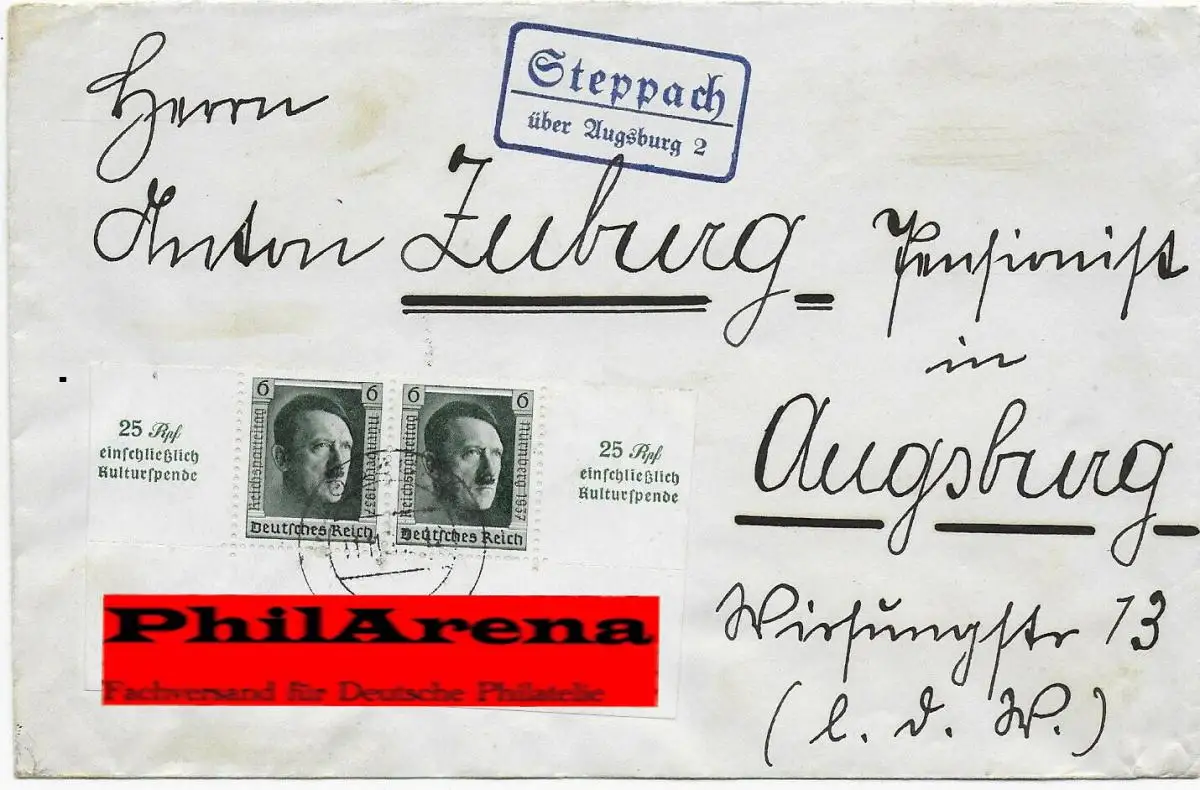 Steppach
über Augsburg 2
Herrn
Anton Zuburg Pensionist
in
Augsburg
Wirsungstr 13
(l. d. W.)
25 Rpf
einschließlich
Kulturspende
6 6
Reichsparteitag
Nürnberg 1937
Deutsches Reich
6 6
Reichsparteitag
Nürnberg 1937
Deutsches Reich
25 Rpf
einschließlich
Kulturspende
PhilArena
Fachversand für Deutsche Philatelie